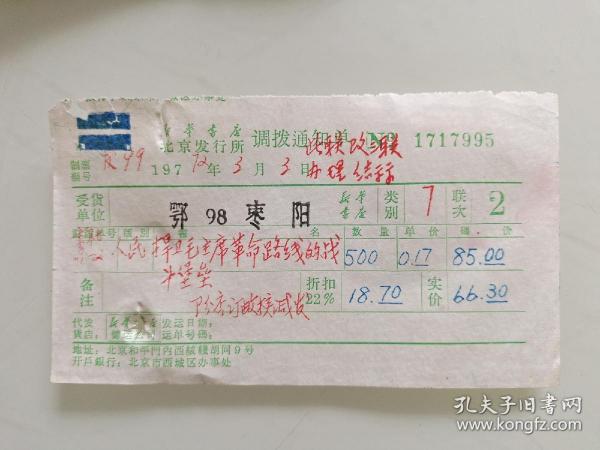 新华书店
北京发行所 调拨通知单 No 1717995
制票编号 99 1972年3月3日
此联改三联
办理结标
受货单位 鄂 98 枣阳 新华书店 类别 7 联次 2
名 数量 单价 码 价
人民 捍卫毛主席革命路线的战
斗堡垒 500 0.17 85.00
备注 折扣22% 18.70 实价 66.30
代发货店: 发运日期:
运单号码:
地址: 北京和平门内西绒线胡同9号
开户银行: 北京市西城区办事处
孔夫子旧书网
www.kongfz.com